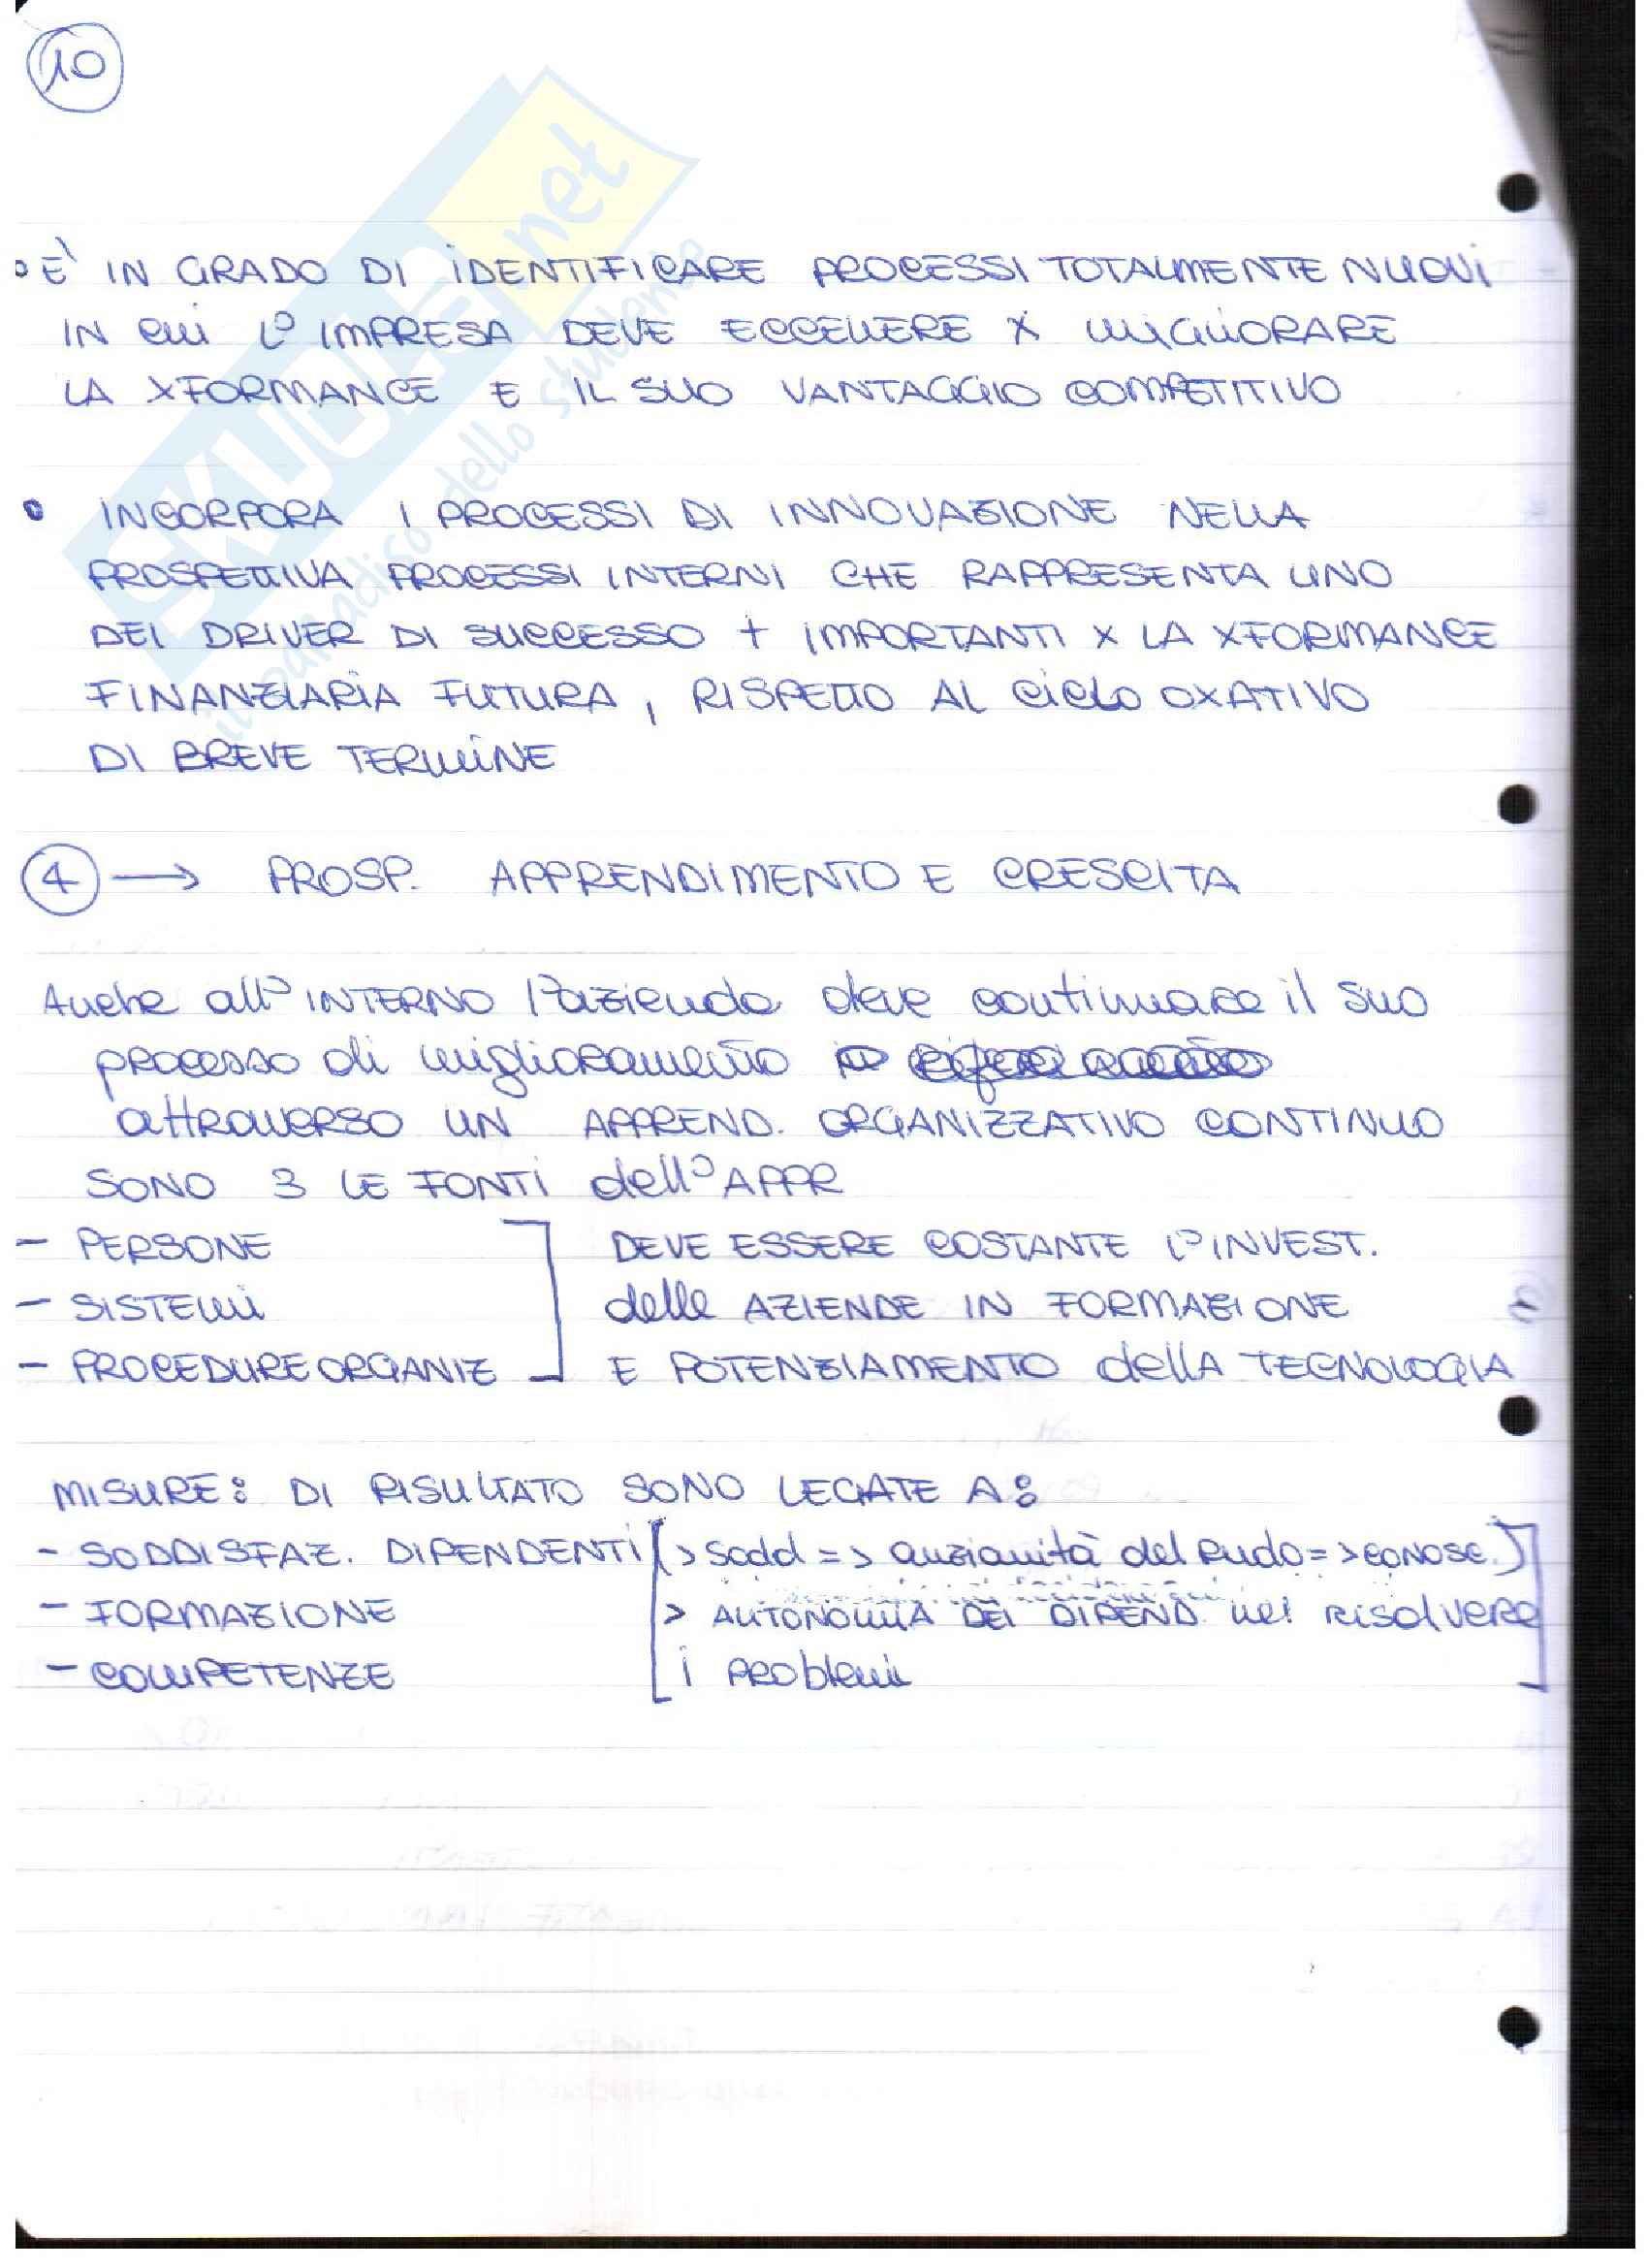 10
SKUOLA.net
il paradiso dello studente
• È IN GRADO DI IDENTIFICARE PROCESSI TOTALMENTE NUOVI
IN cui l'IMPRESA DEVE ECCELLERE X MIGLIORARE
LA XFORMANCE E IL SUO VANTAGGIO COMPETITIVO
• INCORPORA I PROCESSI DI INNOVAZIONE NELLA
PROSPETTIVA PROCESSI INTERNI CHE RAPPRESENTA UNO
DEI DRIVER DI SUCCESSO + IMPORTANTI X LA XFORMANCE
FINANZIARIA FUTURA, RISPETTO AL CICLO OXATIVO
DI BREVE TERMINE
4 → PROSP. APPRENDIMENTO E CRESCITA
Anche all'INTERNO l'azienda deve continuare il suo
processo di miglioramento
attraverso UN APPREND. ORGANIZZATIVO CONTINUO
SONO 3 LE FONTI dell'APPR
- PERSONE DEVE ESSERE COSTANTE l'INVEST.
- SISTEMI delle AZIENDE IN FORMAZIONE
- PROCEDURE ORGANIZ E POTENZIAMENTO della TECNOLOGIA
MISURE: DI RISULTATO SONO LEGATE A:
- SODDISFAZ. DIPENDENTI (> Sodd => anzianità del => CONOSC.)
- FORMAZIONE > AUTONOMIA DEI DIPEND. nel risolvere
- COMPETENZE i problemi